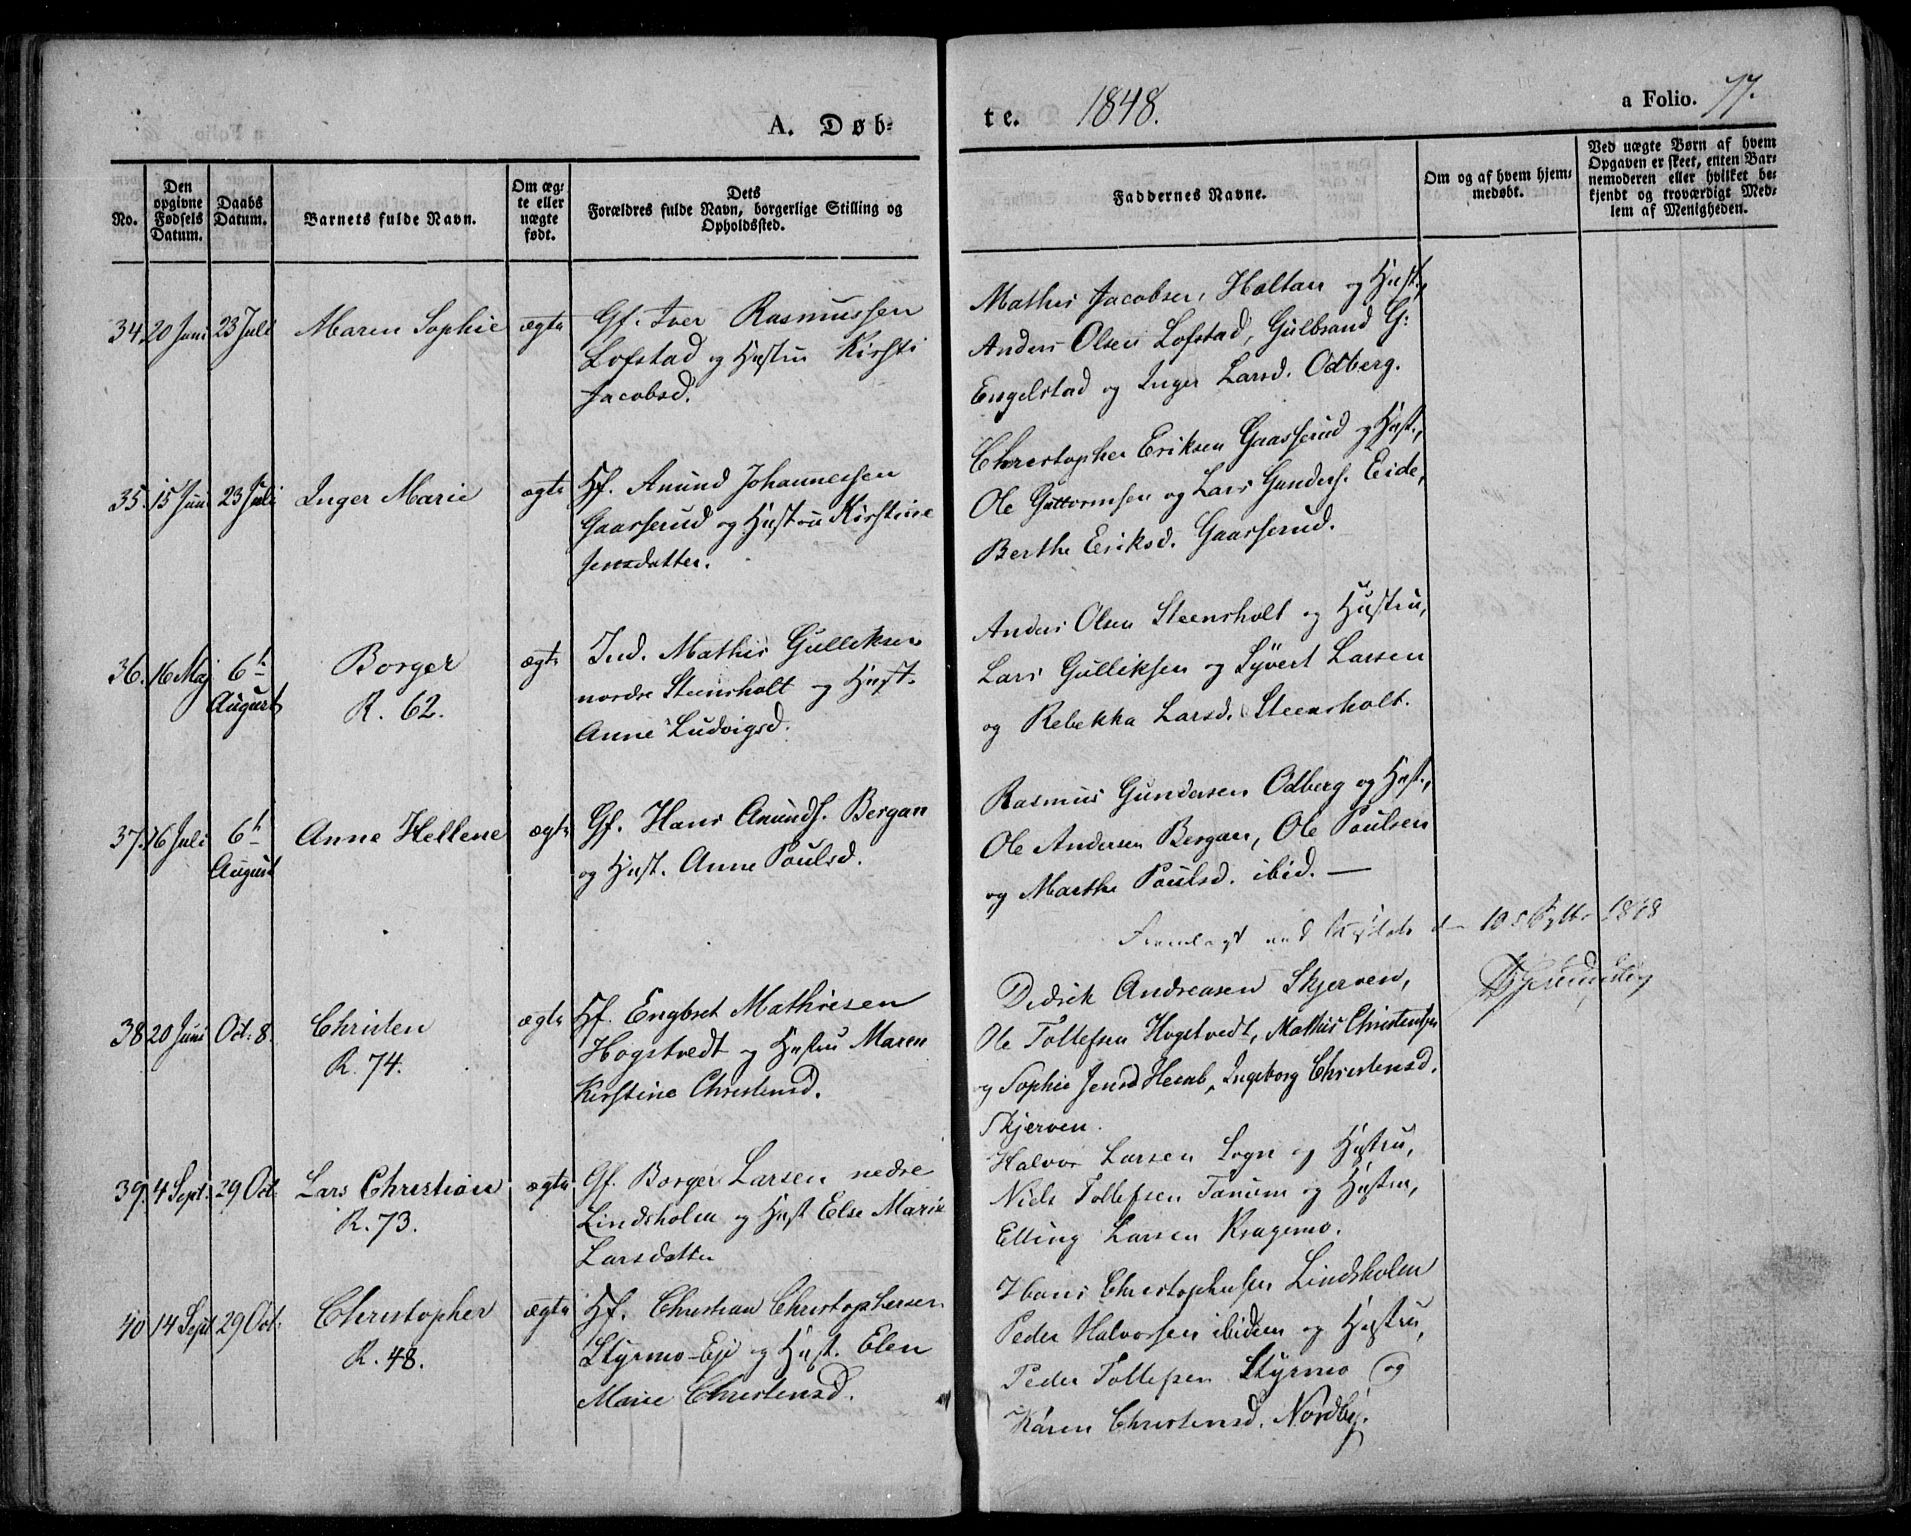 A. Døb-
te. 1848.
a Folio. 77.
No.
Den opgivne Fødsels Datum.
Daabs Datum.
Barnets fulde Navn.
Om ægte eller uægte født.
Dets
Forældres fulde Navn, borgerlige Stilling og
Opholdssted.
Faddernes Navne.
Om og af hvem hjem-
medøbt.
Ved uægte Børn af hvem
Opgaven er skeet, enten Bar-
nemoderen eller hvilket be-
kjendt og troværdigt Med-
lem af Menigheden.
34. 20 Juni 23 Juli Maren Sophie ægte Gf. Iver Rasmussen
Lofstad og Hustru Kirsti
Jacobsd.
Mathis Jacobsen, Holtan og Hust.,
Anders Olsen Lofstad, Gulbrand G:
Engelstad og Inger Larsd. Odberg.
35. 15 Juni 23 Juli Inger Marie ægte Hf. Anund Johannessen
Gaasserud og Hustru Kirstine
Jensdatter.
Christopher Eriksen Gaasserud og Hust.,
Ole Guttormsen og Lars Gunders. Eide,
Berthe Eriksd. Gaasserud.
36. 16 Maj 6te
August
Borger
R. 62.
ægte Ind. Mathis Gulliksen
nordre Steensholt og Hust.
Anne Ludvigsd.
Anders Olsen Steensholt og Hustru,
Lars Gulliksen og Syvert Larsen
og Rebekka Larsd. Steensholt.
37. 16 Juli 6te
August
Anne Hellene ægte Gf. Hans Anunds. Bergan
og Hust. Anne Poulsd.
Rasmus Gundersen Odberg og Hust.,
Ole Andersen Bergan, Ole Poulsen
og Marthe Poulsd. ibid. —
10 1848
38 20 Juni Oct. 8. Christen
R. 74.
ægte Hf. Engbret Mathisen
Hogstvedt og Hustru Maren
Kirstine Christensd.
Didrik Andreasen Skjerven,
Ole Tollefsen Hogstvedt, Mathis Christensen
og Sophie Jensd Heum, Ingeborg Christensd.
Skjerven.
39. 4 Sept. 29 Oct. Lars Christian
R. 73.
ægte Gf. Borger Larsen nedre
Lindsholm og Hust Else Marie
Larsdatter
Halvor Larsen Sogn og Hustru,
Niels Tollefsen Tanum og Hustru,
Elling Larsen Kragemo.
40 14 Sept 29 Oct. Christopher
R. 48.
ægte Hf. Christian Christophersen
Styrmo-Eje og Hust. Elen
Marie Christensd.
Hans Christophersen Lindsholm
Peder Halvorsen ibidem og Hustru,
Peder Tollefsen Styrmo og
Karen Christensd. Nordby.